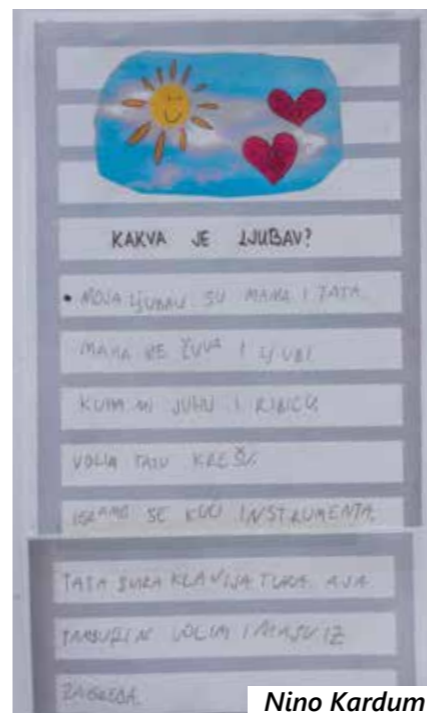 KAKVA JE LJUBAV?
• MOJA LJUBAV SU MAMA I TATA.
MAMA ME ČUVA I LJUBI
KUHA MI JUHU I RIBICU.
VOLIM TATU KREŠU.
IGRAMO SE KUĆI INSTRUMENTA.
TATA SVIRA KLAVIJATURA. A JA
TAMBURIN VOLIM I MAJU IZ
ZAGREBA.
Nino Kardum